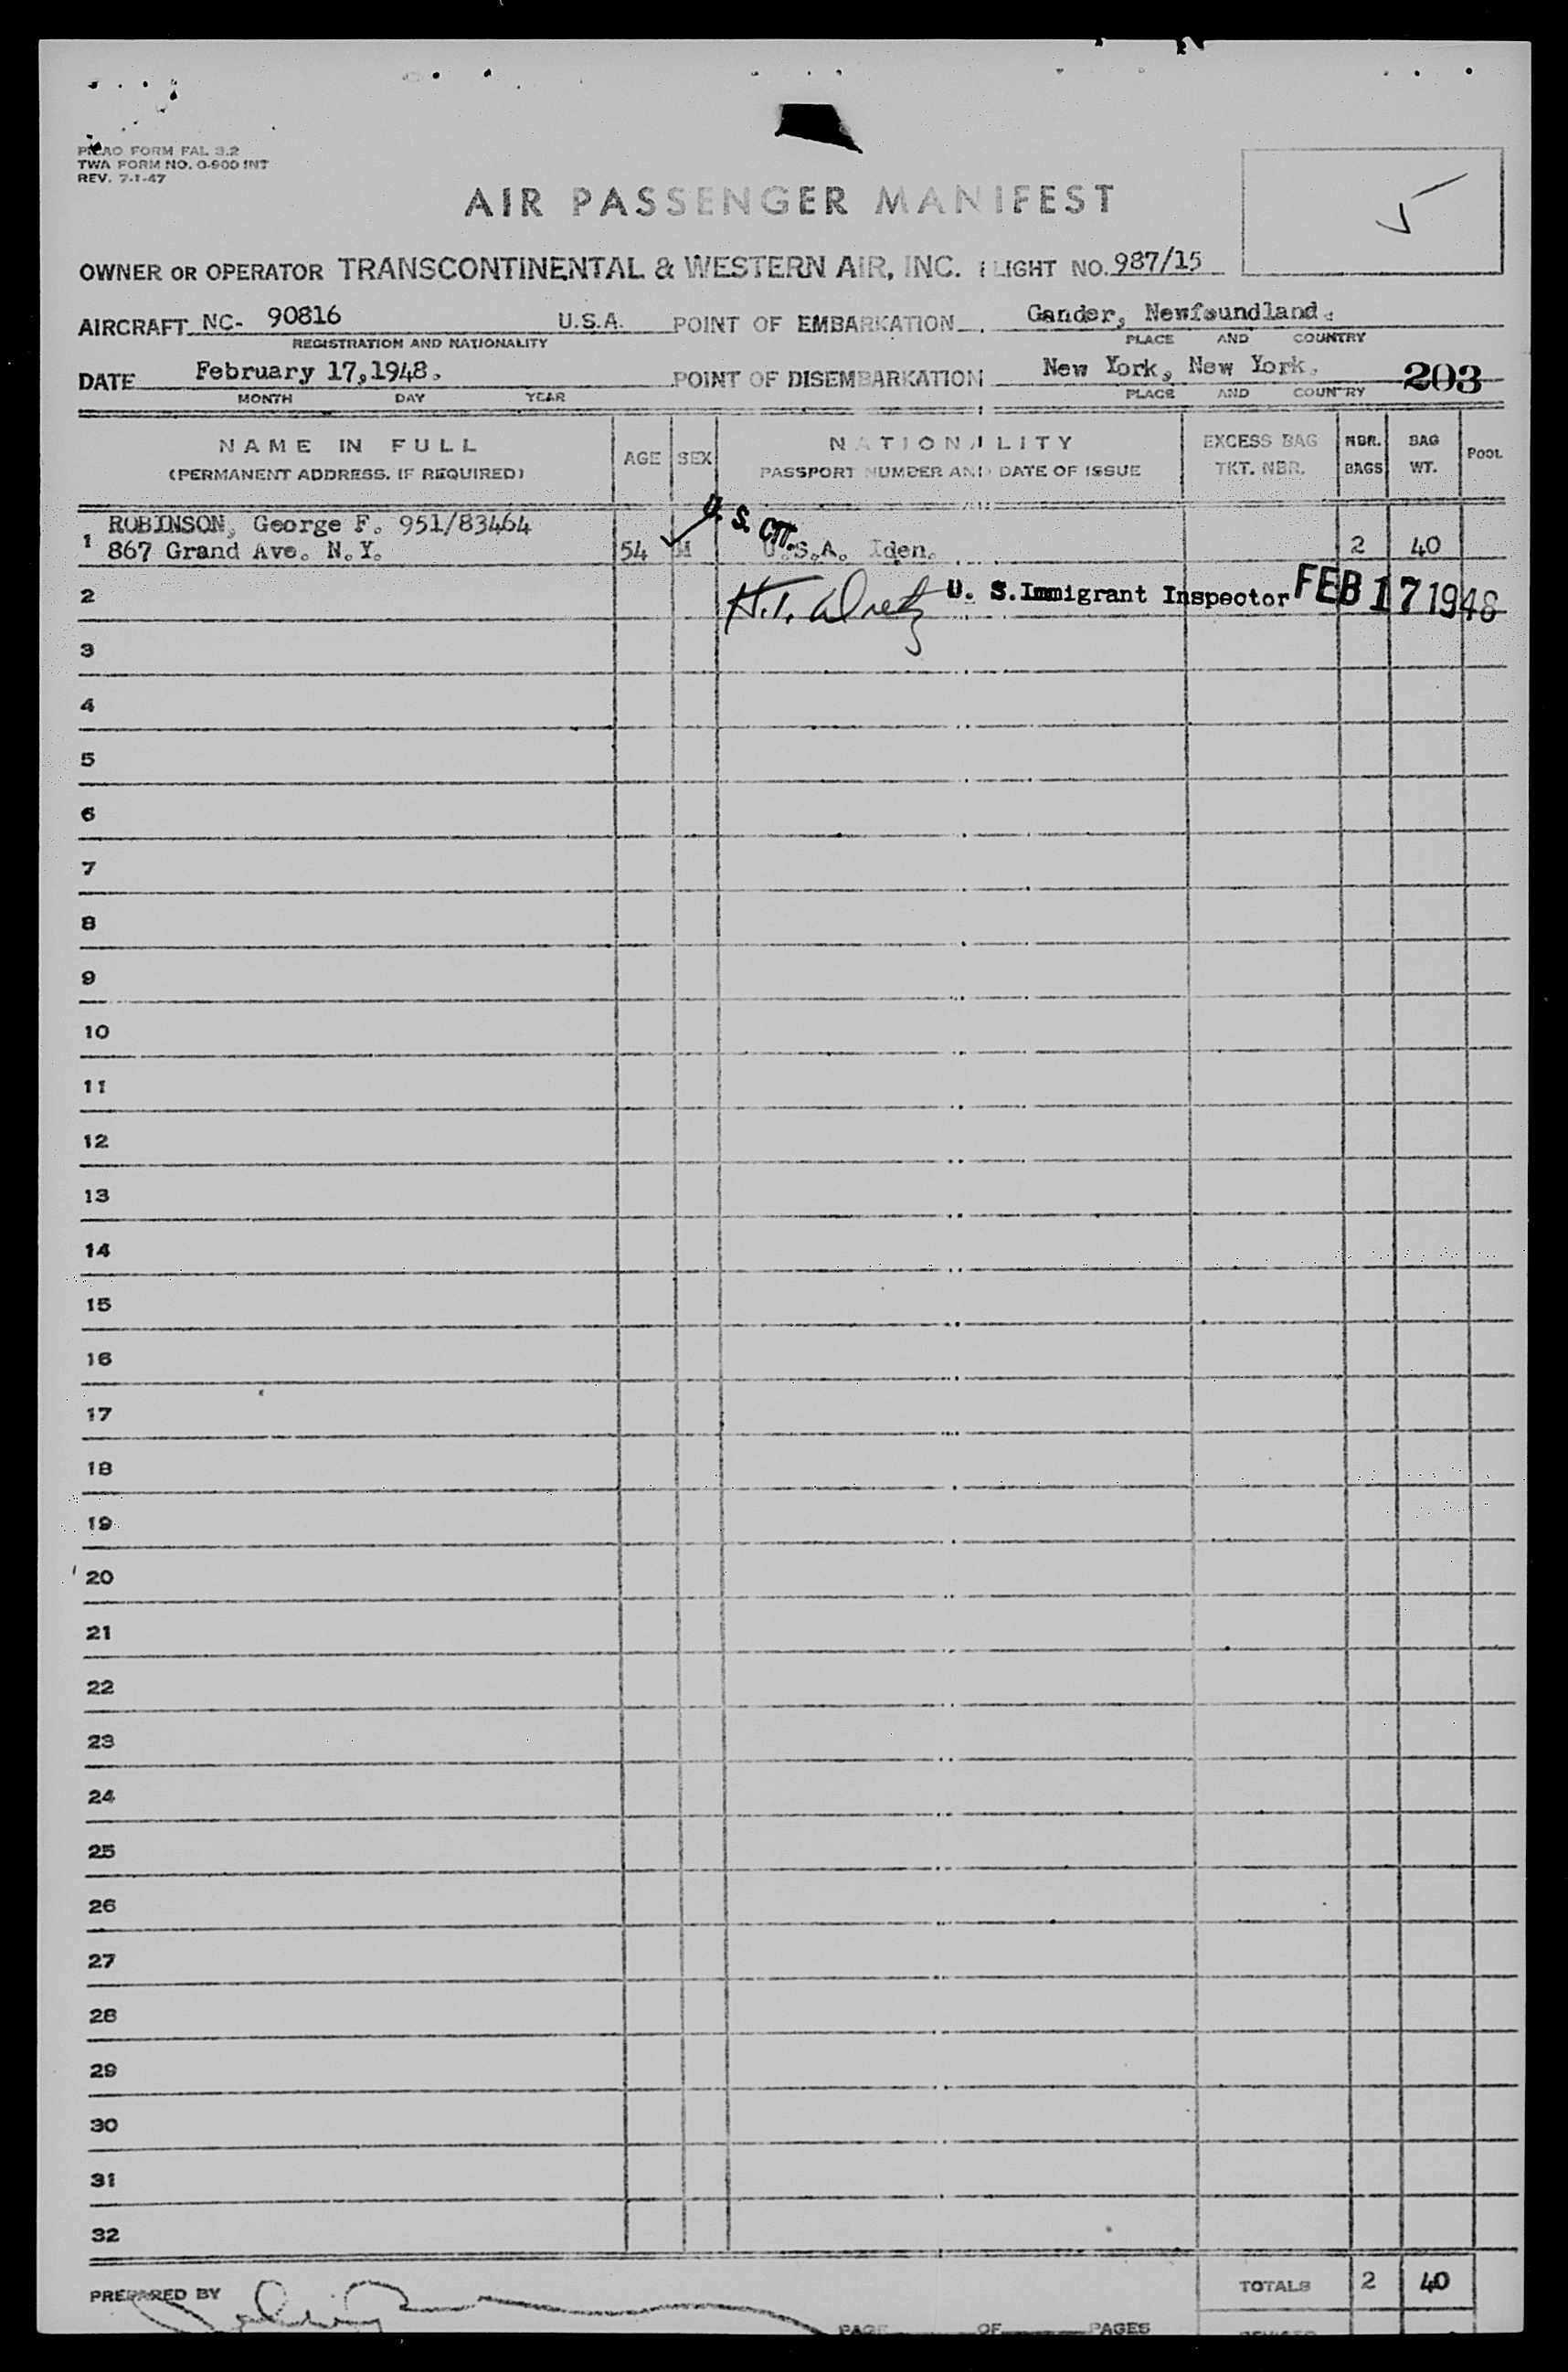 PICAO FORM FAL 3.2
TWA FORM NO. O-900 INT
REV. 7-1-47
AIR PASSENGER MANIFEST
OWNER OR OPERATOR TRANSCONTINENTAL & WESTERN AIR, INC. FLIGHT NO. 987/15
AIRCRAFT NC- 90816 U.S.A. POINT OF EMBARKATION Gander, Newfoundland.
REGISTRATION AND NATIONALITY PLACE AND COUNTRY
DATE February 17,1948. POINT OF DISEMBARKATION New York, New York. 203
MONTH DAY YEAR PLACE AND COUNTRY
NAME IN FULL AGE SEX NATIONALITY EXCESS BAG NBR. BAG POOL
(PERMANENT ADDRESS, IF REQUIRED) PASSPORT NUMBER AND DATE OF ISSUE TKT. NBR. BAGS WT.
ROBINSON, George F. 951/83464 U. S. CIT.
1 867 Grand Ave. N.Y. 54 M U.S.A. Iden. 2 40
2 U. S. Immigrant Inspector FEB 17 1948
3
4
5
6
7
8
9
10
11
12
13
14
15
16
17
18
19
20
21
22
23
24
25
26
27
28
29
30
31
32
PREPARED BY TOTALS 2 40
PAGE OF PAGES